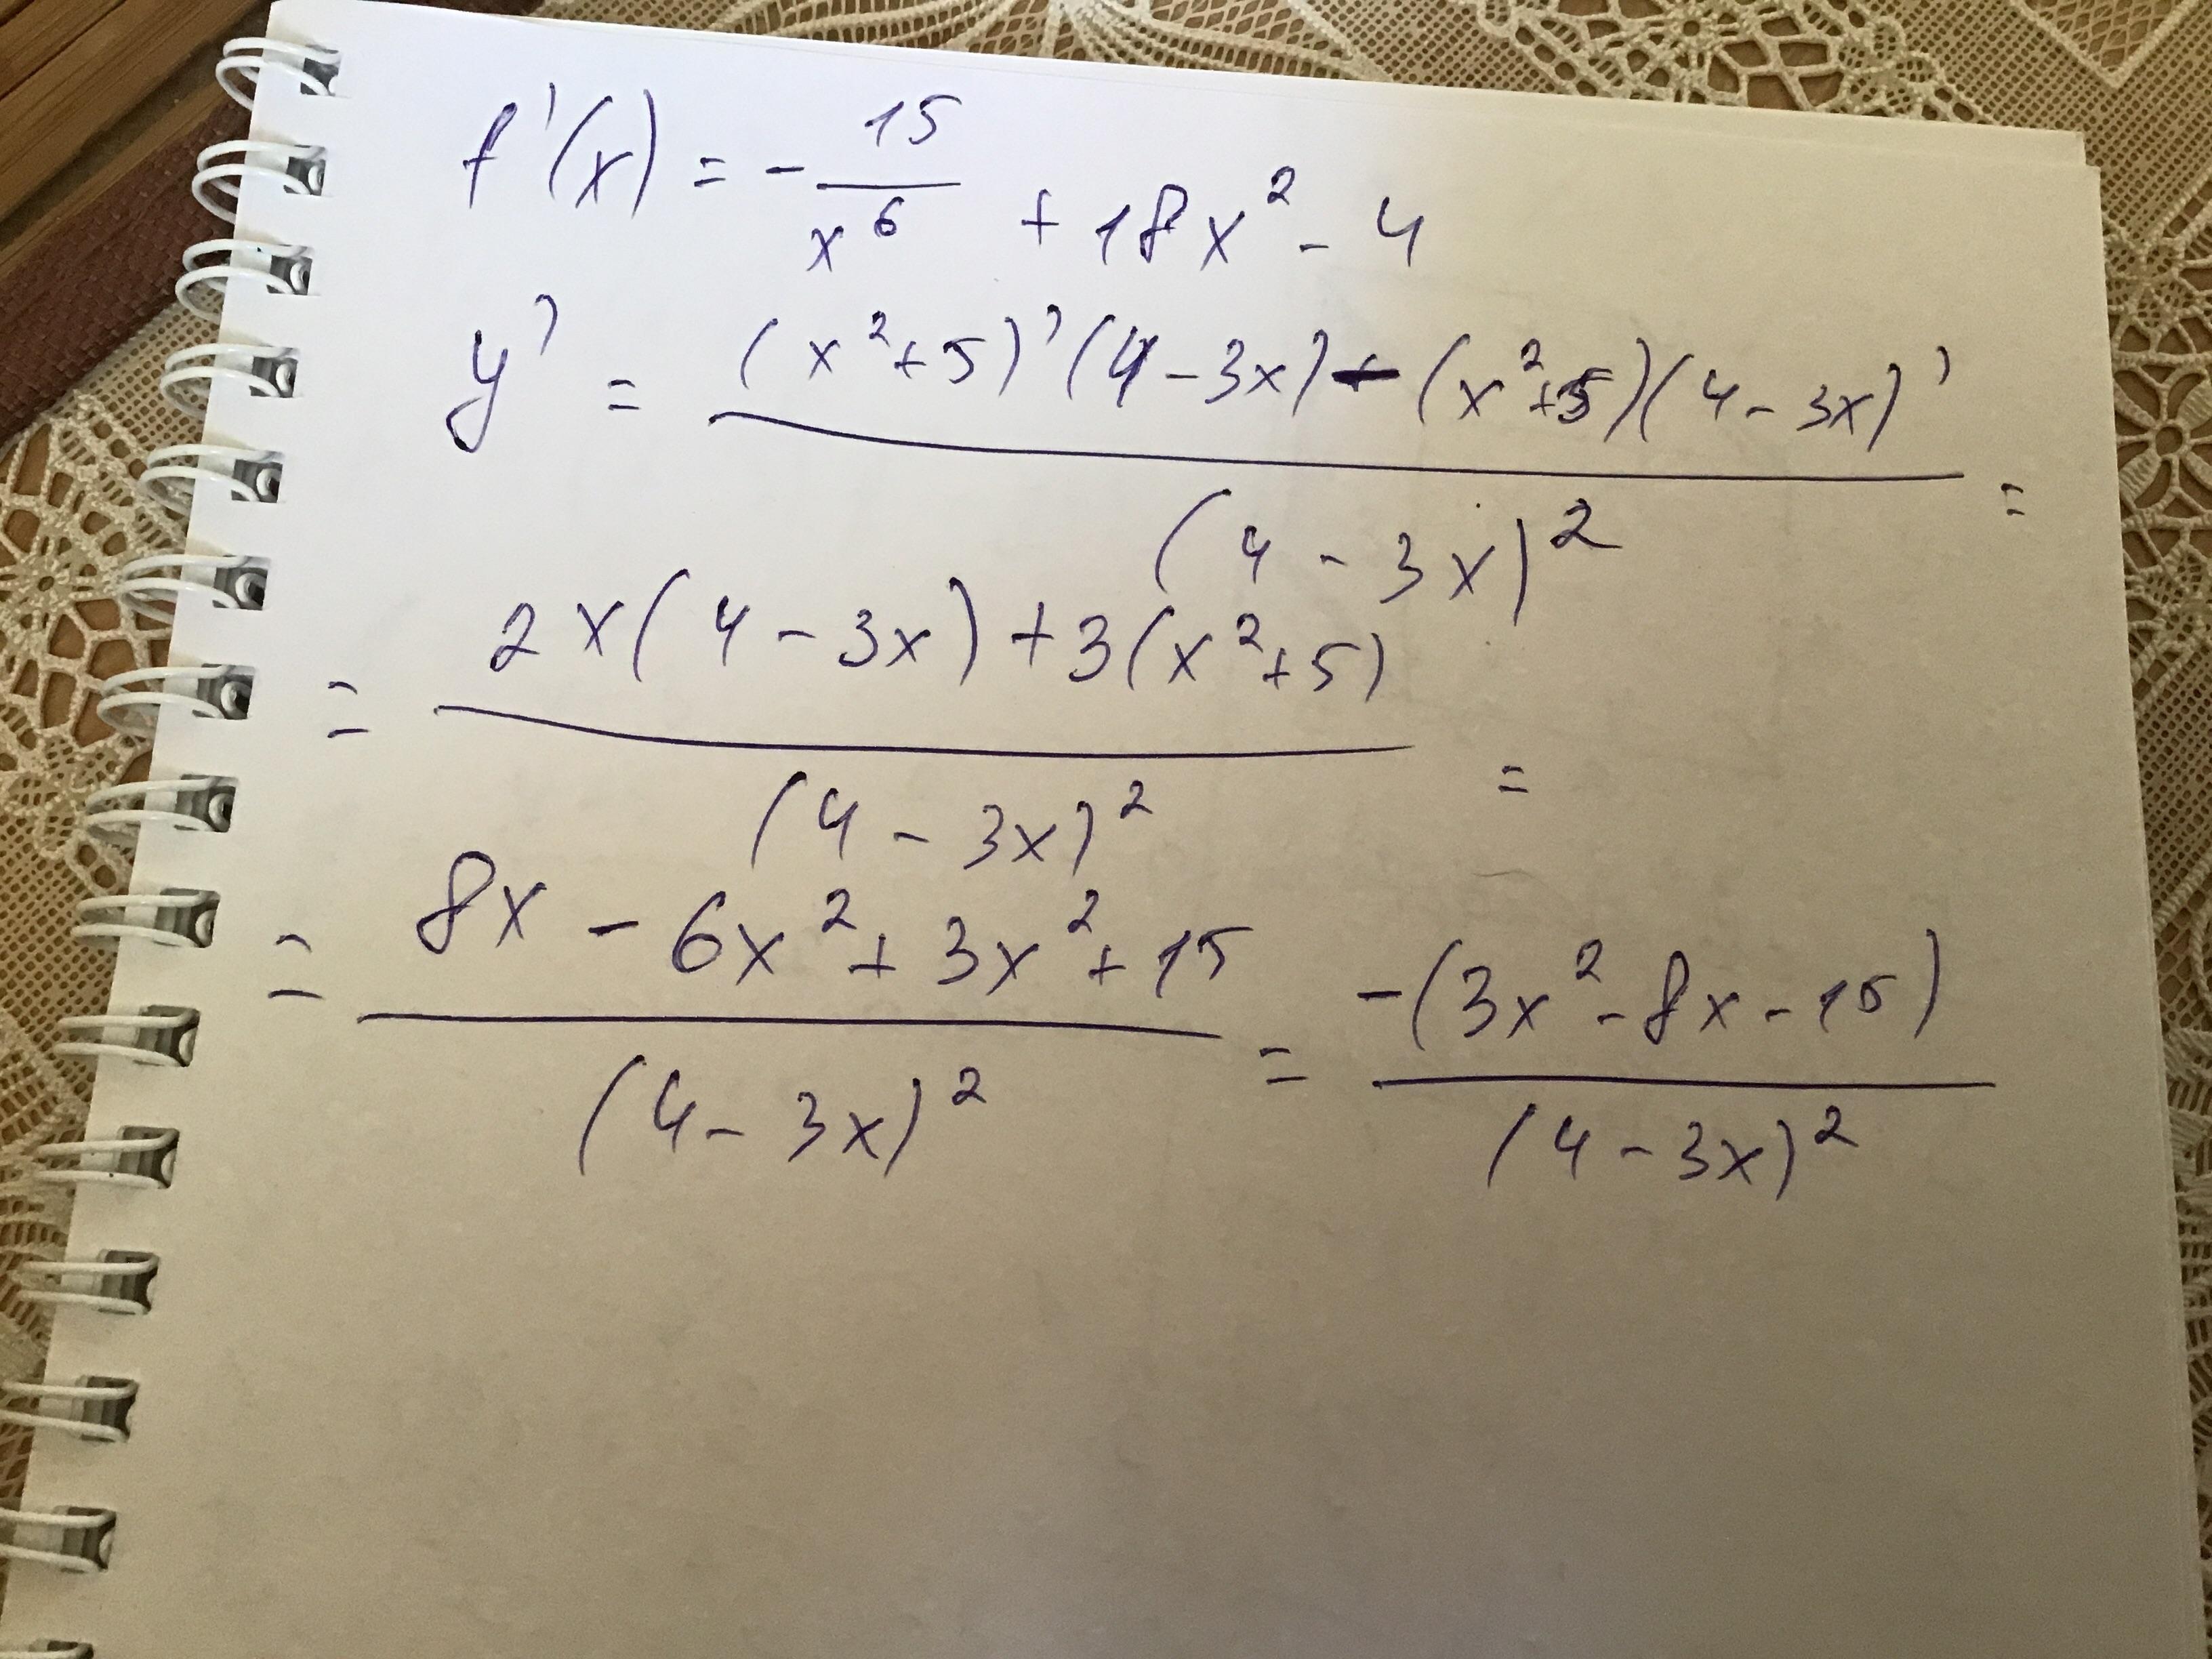 f'(x) = - 15/x⁶ + 18x² - 4
y' = ((x²+5)'(4-3x) - (x²+5)(4-3x)')/(4-3x)² =
= (2x(4-3x)+3(x²+5))/(4-3x)² =
= (8x - 6x² + 3x² + 15)/(4-3x)² = -(3x²-8x-15)/(4-3x)²